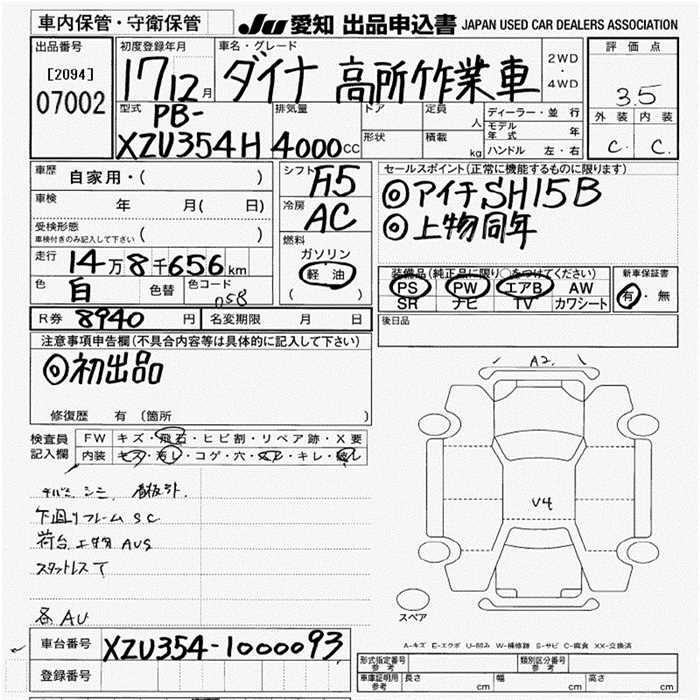 車内保管・守衛保管 Ju 愛知 出品申込書 JAPAN USED CAR DEALERS ASSOCIATION
出品番号
[2094]
07002
初度登録年月
17 12月
車名・グレード
ダイナ 高所作業車
2WD
・
4WD
評価点
3.5
外装 内装
C. C.
型式
PB-
XZU354H
排気量
4000cc
ドア
形状
定員
人
積載
kg
ディーラー・並行
モデル年式 年
ハンドル 左・右
車歴
自家用・( )
車検
年 月( 日)
受検形態
車検付きのみ記入して下さい ( )
走行
14万8千656km
色
白
色替
色コード
058
シフト
F5
冷房
AC
燃料
ガソリン
軽油
( )
セールスポイント(正常に機能するものに限ります)
◎アイチSH15B
◎上物同年
装備品(純正品に限り○をつけてください)
PS PW エアB AW
SR ナビ TV カワシート
新車保証書
有・無
R券 8940円 名変期限 月 日
後日品
注意事項申告欄(不具合内容等は具体的に記入して下さい)
◎初出品
修復歴 有 (箇所 )
検査員記入欄
FW キズ・飛石・ヒビ割・リペア跡・X要
内装 キズ・汚レ・コゲ・穴・スレ・キレ・破レ
下回リフレームSC
荷台 上物AUS
スタットレスT
各AU
A2
V4
スペア
A-キズ E-エクボ U-凹み W-補修跡 S-サビ C-腐食 XX-交換済
車台番号
XZU354-1000093
登録番号
形式指定番号
参考
類別区分番号
参考
車庫証明用
参考
長さ cm 幅 cm 高さ cm